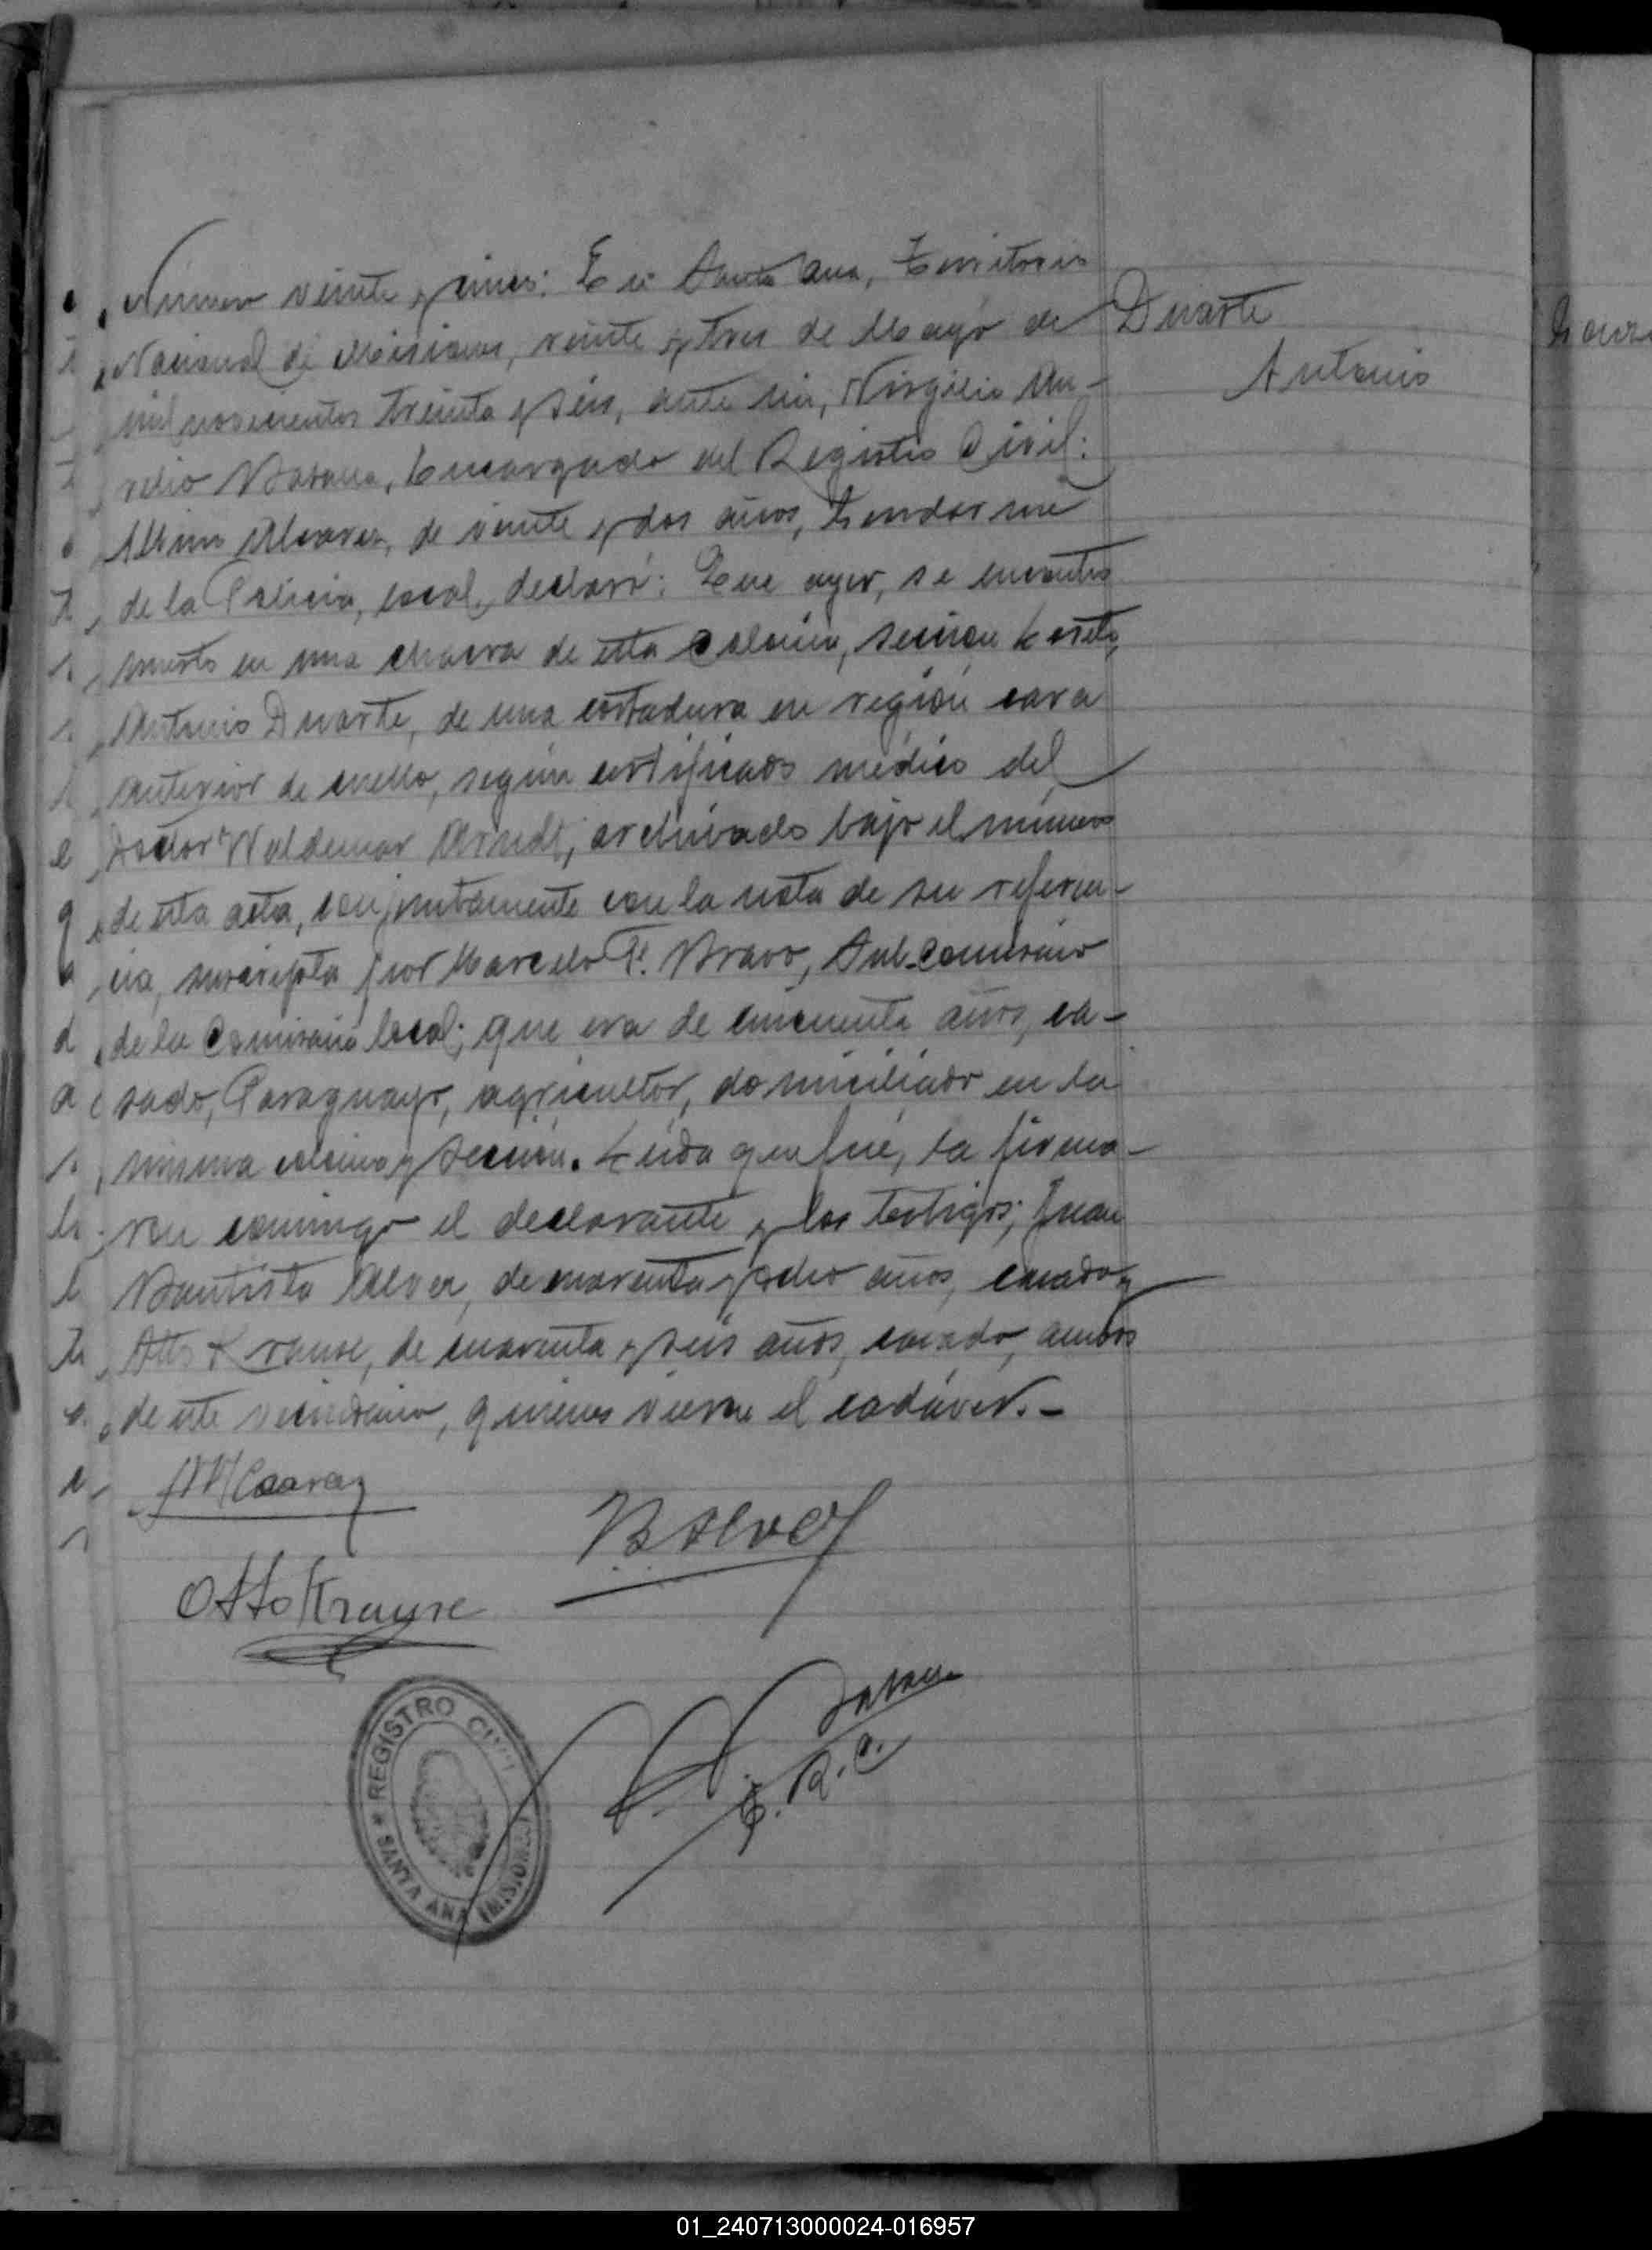 Número veinte y cinco: En Santa Ana, Territorio
Nacional de Misiones, veinte y tres de Mayo de
mil novecientos treinta y seis, ante mi, Virgilio Au-
relio Basana, Encargado del Registro Civil:
Albino Alvarez, de veinte y dos años, Gendarme
de la Policia, local, declaró: Que ayer, se encontró
muerto en una chacra de esta Colonia, sección Loreto,
Antonio Duarte, de una cortadura en región cara
anterior de cuello, según certificado médico del
Doctor Waldemar Arndt, archivado bajo el número
de esta acta, conjuntamente con la nota de su referen-
cia, suscripta por Marcelo F. Bravo, Sub-Comisario
de la Comisaria local; que era de cincuenta años, ca-
sado, Paraguayo, agricultor, domiciliado en la
misma colonia y sección. Leida que fué, la firma-
ron conmigo el declarante y los testigos; Juan
Bautista Alvez, de cuarenta y ocho años, casado y
Otto Krause, de cuarenta y seis años, casado, ambos
de este vecindario, quienes vieron el cadáver.-
Duarte
Antonio
B Alvez
Otto Krause
E. R. C.
REGISTRO CIVIL
SANTA ANA (MISIONES)
01_240713000024-016957